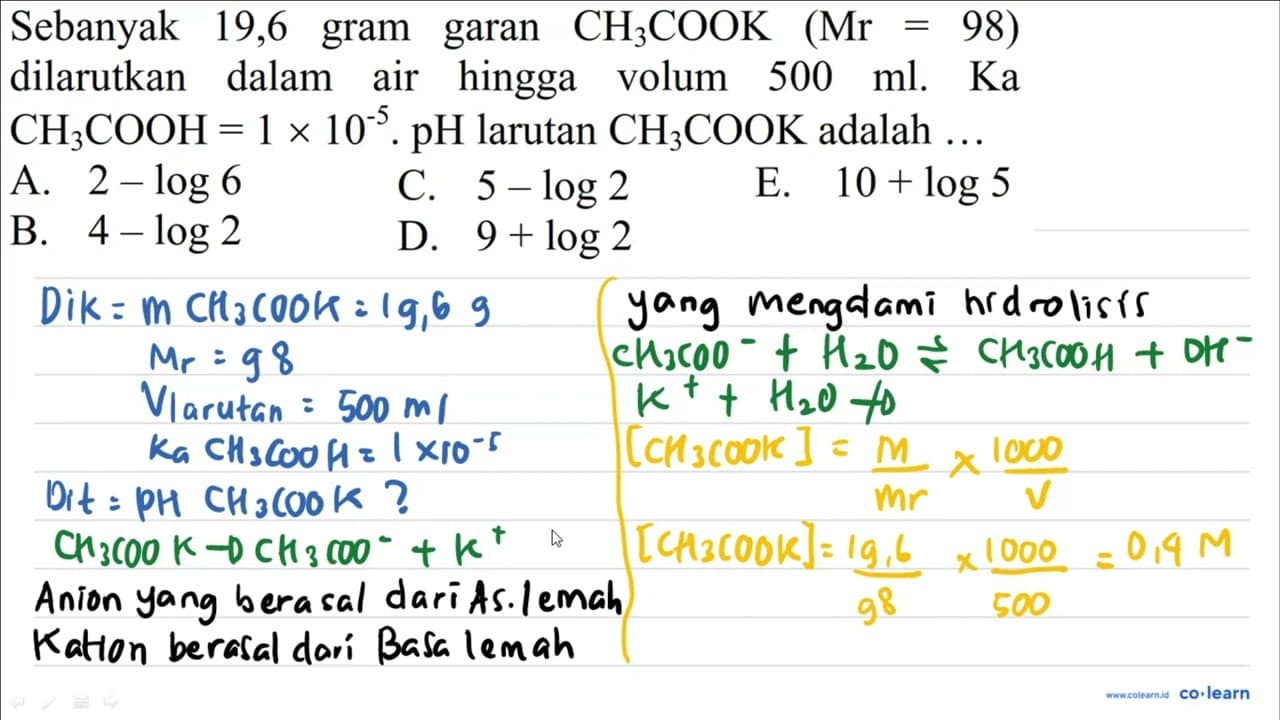 Sebanyak 19,6 gram garan CH₃COOK (Mr = 98)
dilarutkan dalam air hingga volum 500 ml. Ka
CH₃COOH = 1 × 10⁻⁵. pH larutan CH₃COOK adalah …
A. 2 – log 6 C. 5 – log 2 E. 10 + log 5
B. 4 – log 2 D. 9 + log 2
Dik = m CH₃COOK = 19,6 g
Mr = 98
Vlarutan = 500 ml
Ka CH₃COOH = 1 × 10⁻⁵
Dit = pH CH₃COOK ?
CH₃COOK → CH₃COO⁻ + K⁺
Anion yang berasal dari As. lemah
Kation berasal dari Basa lemah
yang mengalami hidrolisis
CH₃COO⁻ + H₂O ⇌ CH₃COOH + OH⁻
K⁺ + H₂O ↛
[CH₃COOK] = M/mr × 1000/V
[CH₃COOK] = 19,6/98 × 1000/500 = 0,4 M
www.colearn.id co·learn